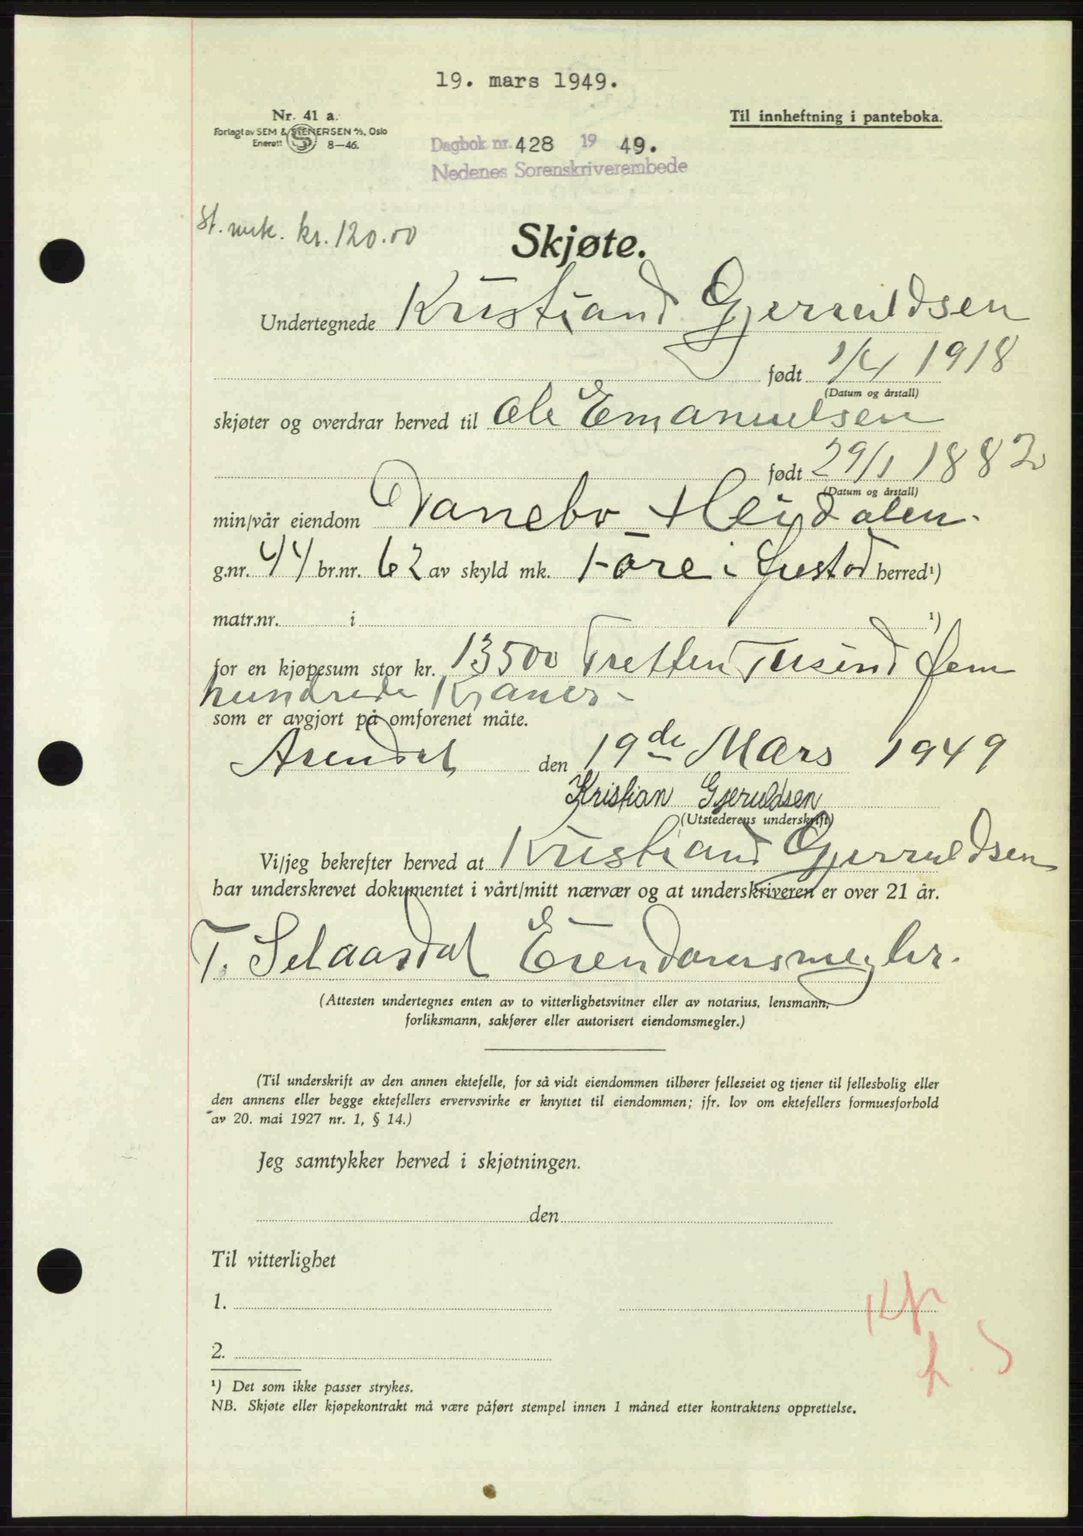 19. mars 1949.
Nr. 41 a.
Til innheftning i panteboka.
Forlagt av SEM & STENERSEN A/S, Oslo
Enerett 8-46.
Dagbok nr. 428 1949.
Nedenes Sorenskriverembede
St. mrk. kr. 120.00
Skjøte.
Undertegnede Kristiand Gjerruldsen
født 1/4 1918
(Datum og årstall)
skjøter og overdrar herved til Ole Emanuelsen
født 29/1 1882
(Datum og årstall)
min/vår eiendom Danebo Heidalen.
g.nr. 44 br.nr. 62 av skyld mk. 1 øre i herred¹)
matr.nr. i ¹)
for en kjøpesum stor kr. 13500 Tretten Tusind fem
hundrede Kroner -
som er avgjort på omforenet måte.
Arendal den 19de Mars 1949
Kristian Gjeruldsen
(Utstederens underskrift)
Vi/jeg bekrefter herved at Kristiand Gjerruldsen
har underskrevet dokumentet i vårt/mitt nærvær og at underskriveren er over 21 år.
T. Selaasdal Eiendomsmegler.
(Attesten undertegnes enten av to vitterlighetsvitner eller av notarius, lensmann,
forliksmann, sakfører eller autorisert eiendomsmegler.)
(Til underskrift av den annen ektefelle, for så vidt eiendommen tilhører felleseiet og tjener til fellesbolig eller
den annens eller begge ektefellers ervervsvirke er knyttet til eiendommen; jfr. lov om ektefellers formuesforhold
av 20. mai 1927 nr. 1, § 14.)
Jeg samtykker herved i skjøtningen.
den
Til vitterlighet
1.
2.
¹) Det som ikke passer strykes.
NB. Skjøte eller kjøpekontrakt må være påført stempel innen 1 måned etter kontraktens opprettelse.